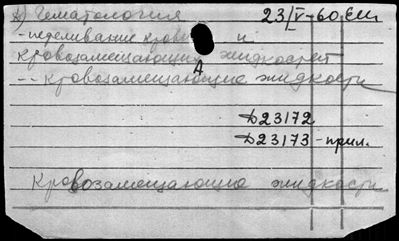 Гематология 23/V-60
-переливание крови и
кровозамещающих жидкостей
-- кровозамещающие жидкости
Д23172
Д23173-прил.
Кровозамещающие жидкости